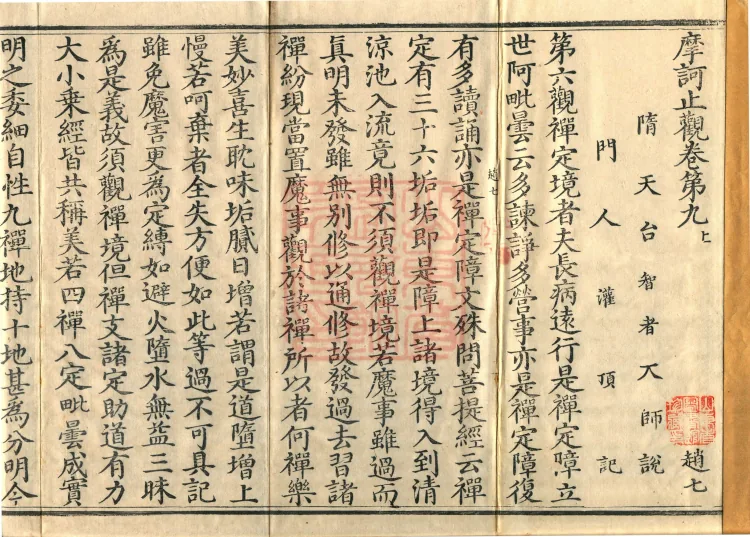 摩訶止觀卷第九上
隋天台智者大師說 趙七
門人灌頂記
第六觀禪定境者夫長病遠行是禪定障立
世阿毗曇云多諫諍多營事亦是禪定障復
有多讀誦亦是禪定障文殊問菩提經云禪
趙七
定有三十六垢垢即是障上諸境得入到清
涼池入流竟則不須觀禪境若魔事雖過而
真明未發雖無別修以通修故發過去習諸
禪紛現當置魔事觀於諸禪所以者何禪樂
美妙喜生耽味垢膩日增若謂是道墮增上
慢若呵棄者全失方便如此等過不可具記
雖免魔害更為定縛如避火墮水無益三昧
為是義故須觀禪境但禪支諸定助道有力
大小乘經皆共稱美若四禪八定毗曇成實
明之委細自性九禪地持十地甚為分明今